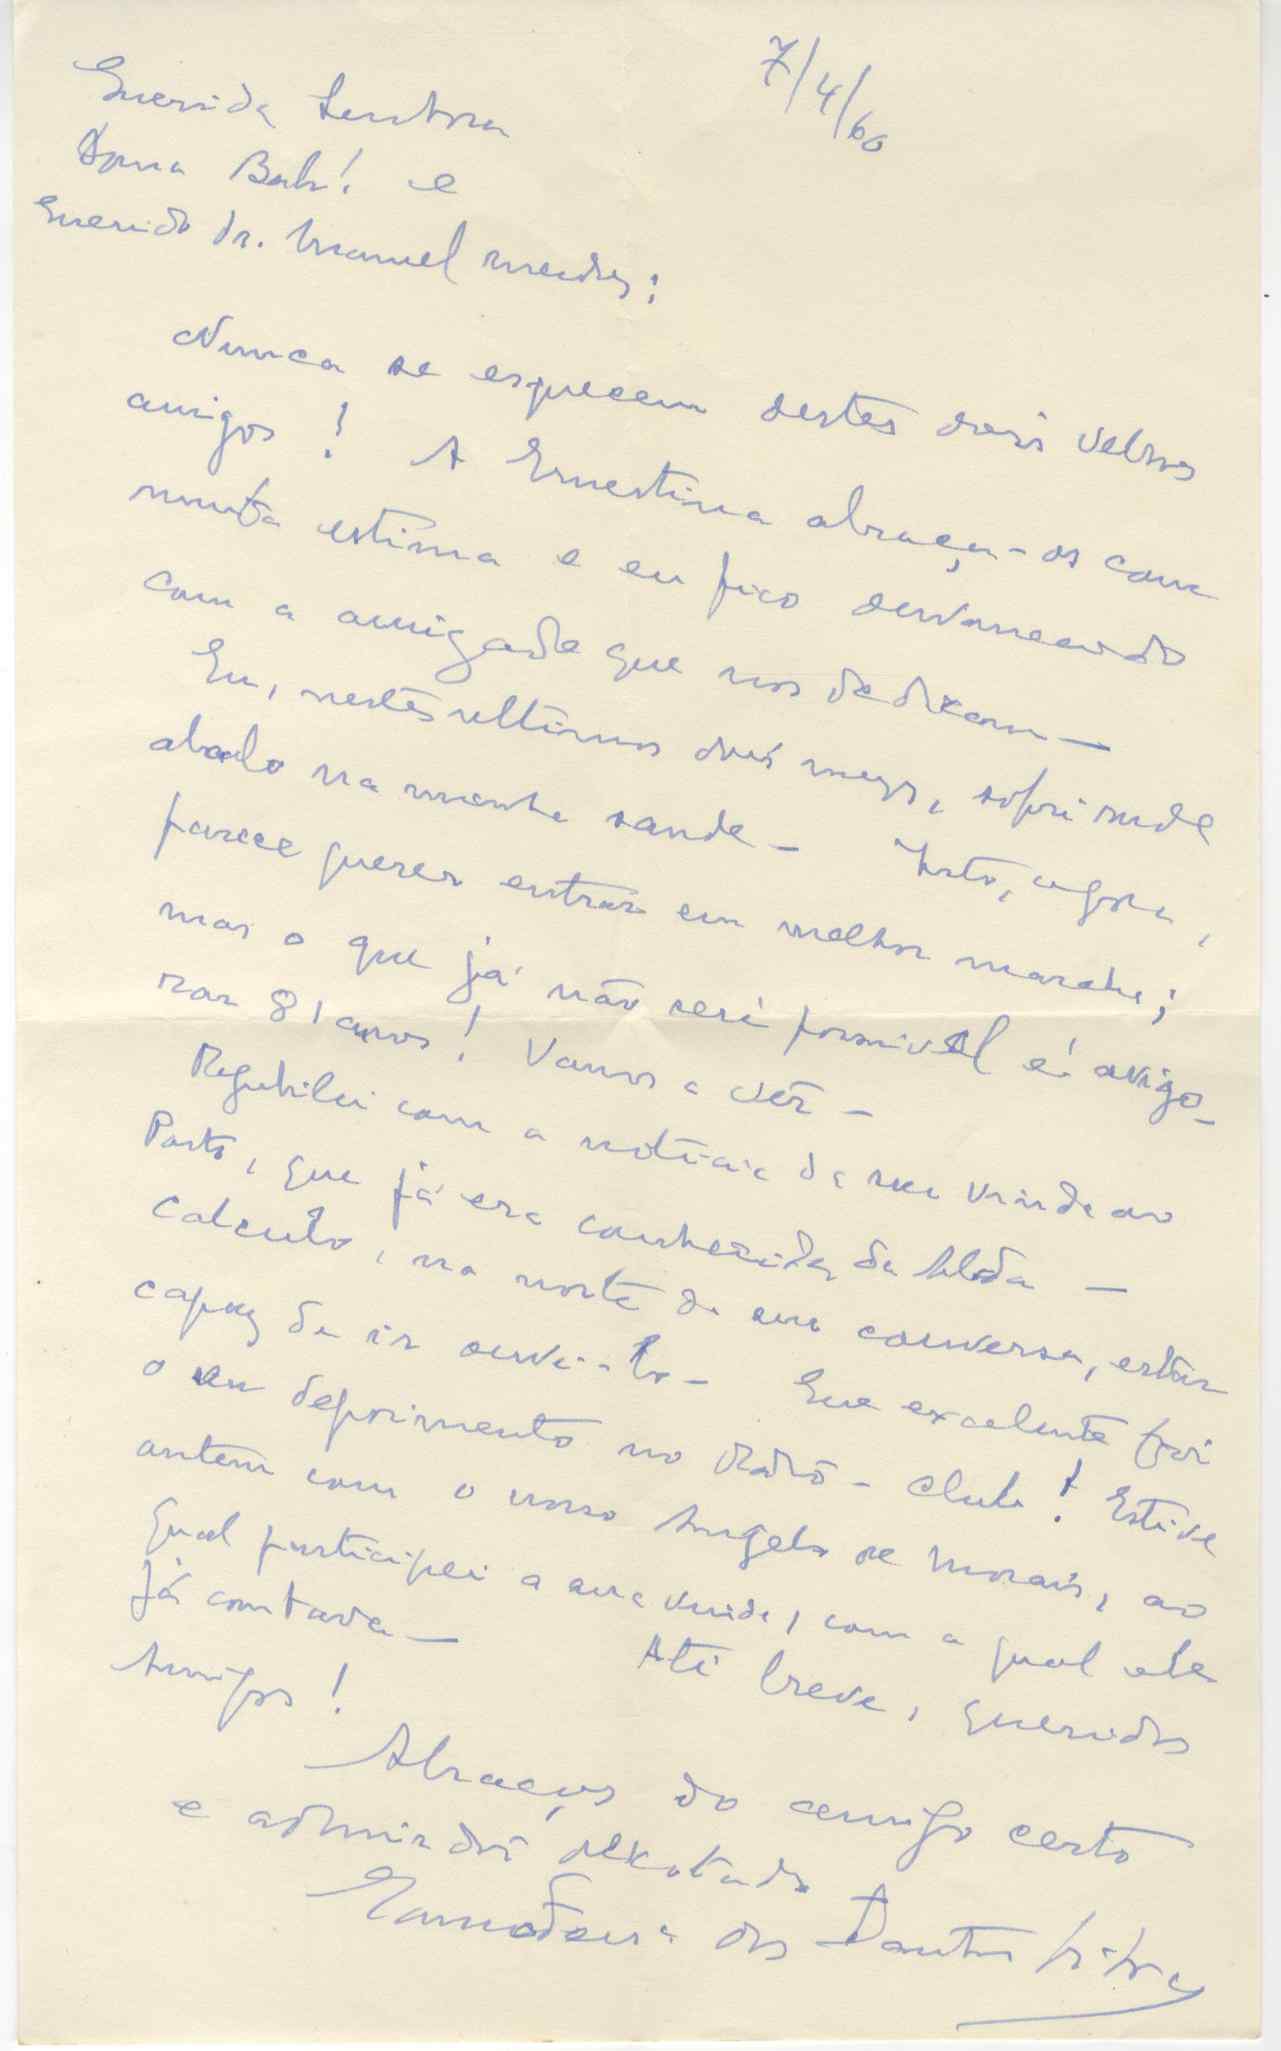 7/4/60
Querida Senhora
Dona Bah! e
Querido Dr. Manuel Mendes:
Nunca se esquecem destes dois velhos
amigos! A Ernestina abraça-os com
muita estima e eu fico desvanecido
com a amizade que nos dedicam—
Eu, nestes ultimos dois mezes, sofri rude
abalo na minha saude— Isto, agora,
parece querer entrar em melhor marcha;
mas o que já não será possivel é avigo-
rar 81 anos! Vamos a vêr—
Regubilei com a noticia da sua vinda ao
Porto, que já era conhecida da
Calculo, na noite da sua conversa, estar
capaz de ir ouvi-lo— Que excelente foi
o seu depoimento no Radio-Clube! Estive
ontem com o nosso Angelo de Morais, ao
qual participei a sua vinda, com a qual ele
já contava— Até breve, queridos
Amigos!
Abraços do amigo certo
e admirador
dos Santos Silva